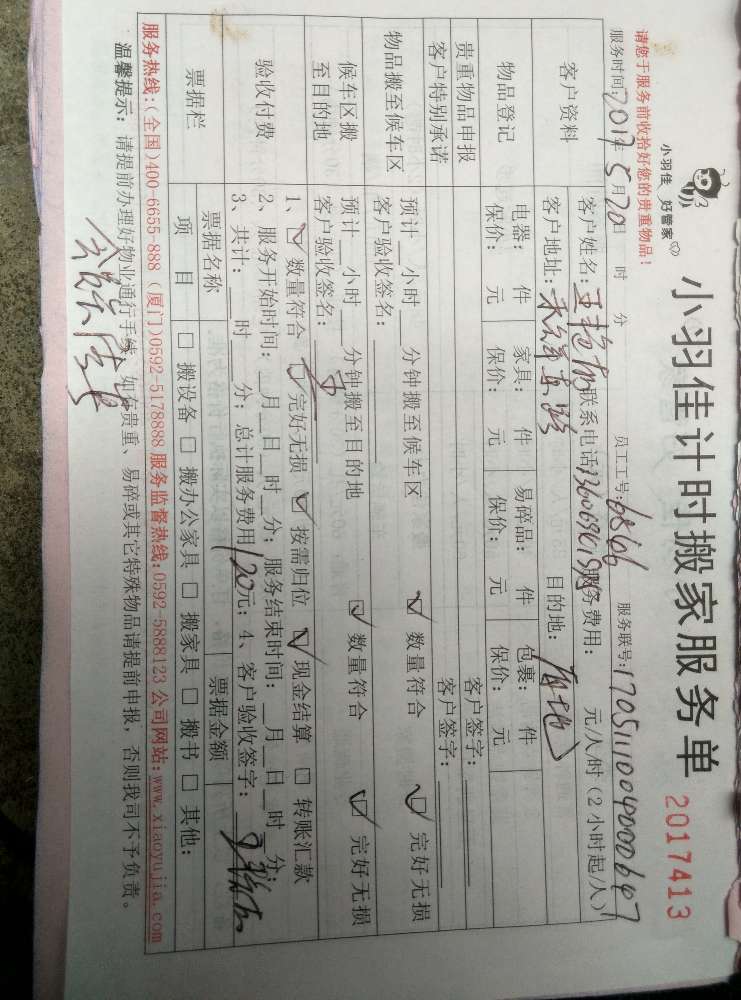 小羽佳 好管家
小羽佳计时搬家服务单 2017413
请您于服务前收拾好您的贵重物品！
服务时间：2017年5月20日 时 分 员工工号：6866 服务联号：
客户资料 客户姓名： 联系电话： 服务费用： 元/人/时（2小时起/人）
客户地址： 目的地：
物品登记 电器： 件 家具： 件 易碎品： 件 包裹： 件
保价： 元 保价： 元 保价： 元 保价： 元
贵重物品申报 客户签字：
客户特别承诺 客户签字：
物品搬至候车区 预计 小时 分钟搬至候车区 ☑ 数量符合 ☑ 完好无损
客户验收签名：
候车区搬至目的地 预计 小时 分钟搬至目的地 ☑ 数量符合 ☑ 完好无损
客户验收签名：
验收付费 1、☑ 数量符合 ☑ 完好无损 ☑ 按需归位 ☑ 现金结算 □ 转账汇款
2、服务开始时间： 月 日 时 分；服务结束时间： 月 日 时 分；
3、共计： 时 分；总计服务费用120元；4、客户验收签字：
票据栏 票据名称 票据金额
项 目 □ 搬设备 □ 搬办公家具 □ 搬家具 □ 搬书 □ 其他：
服务热线：（全国）400-6655-888（厦门）0592-5178888 服务监督热线：0592-5888123 公司网站：www.xiaoyujia.com
温馨提示：请提前办理好物业通行手续，如有贵重、易碎或其它特殊物品请提前申报，否则我司不予负责。